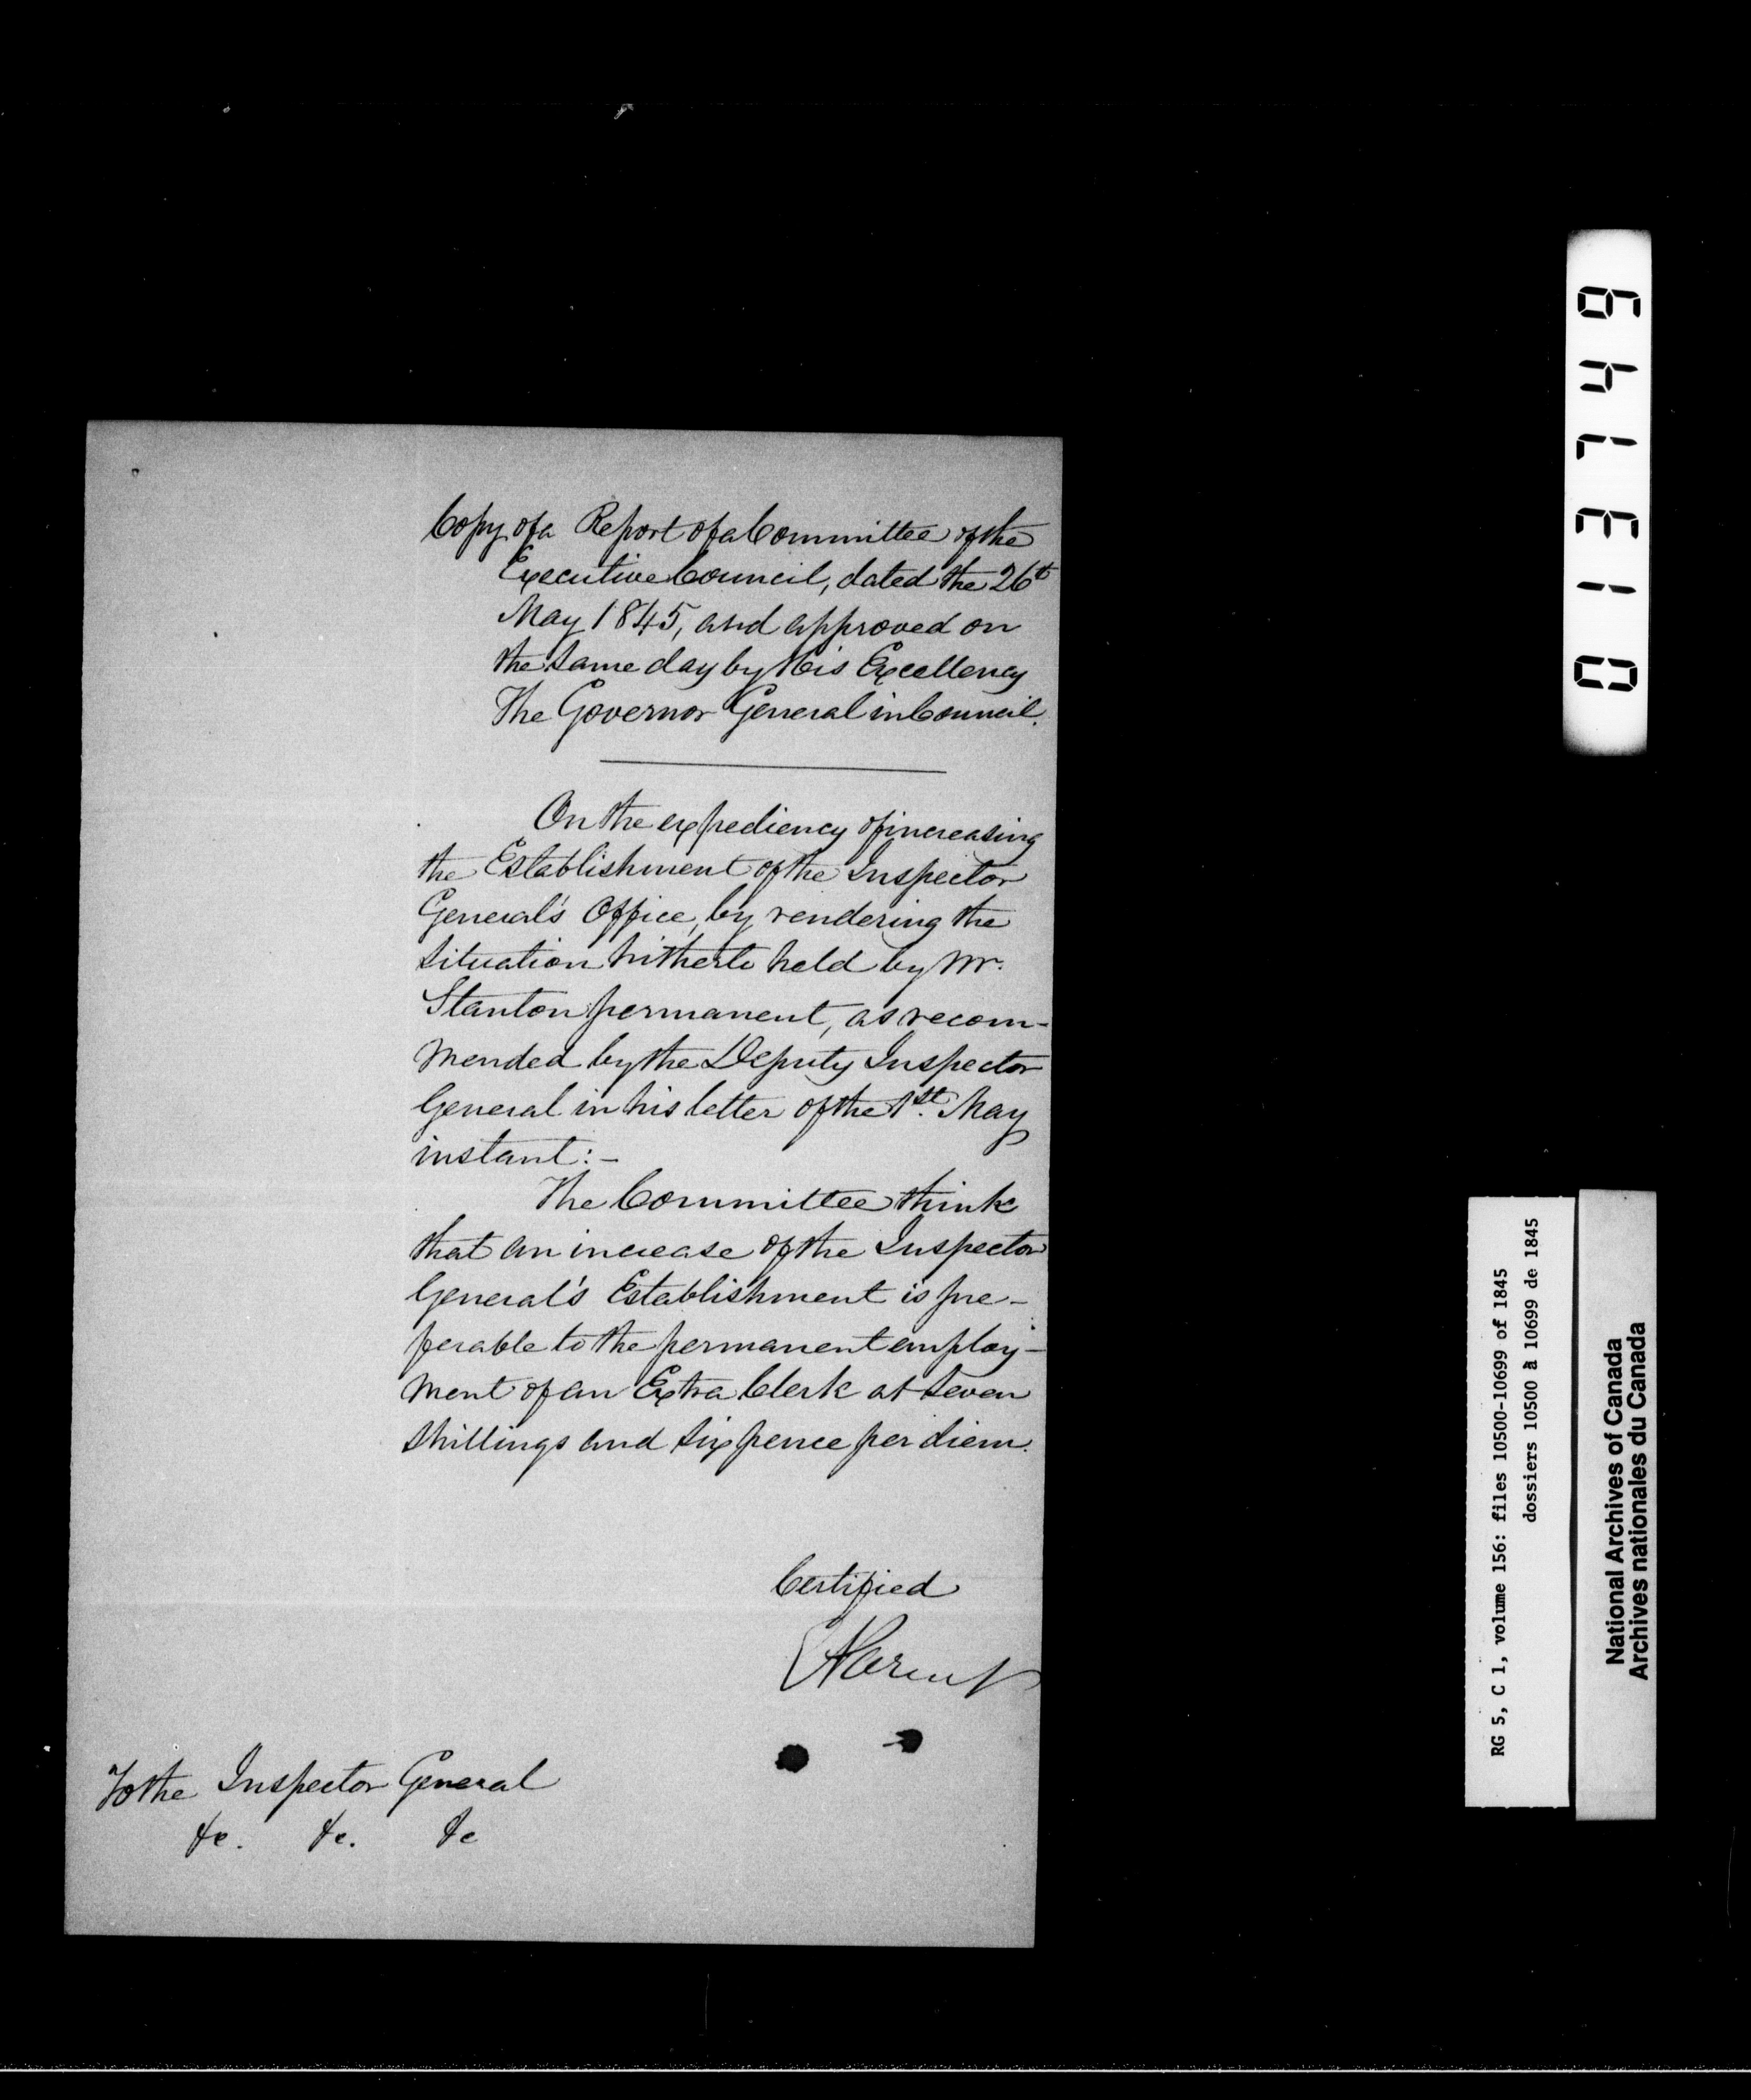 Copy of a Report of a Committee of the
Executive Council, dated the 26th
May 1845, and approved on
the same day by His Excellency
The Governor General in Council.
On the expediency of increasing
the Establishment of the Inspector
General's Office, by rendering the
situation hitherto held by Mr.
Stanton permanent, as recom-
mended by the Deputy Inspector
General in his letter of the 1st. May
instant:-
The Committee think
that an increase of the Inspector
General's Establishment is pre-
ferable to the permanent employ-
ment of an Extra Clerk at seven
shillings and sixpence per diem.
Certified
E Parent
To the Inspector General
&c. &c. &c
013749
RG 5, C 1, volume 156: files 10500-10699 of 1845
dossiers 10500 à 10699 de 1845
National Archives of Canada
Archives nationales du Canada